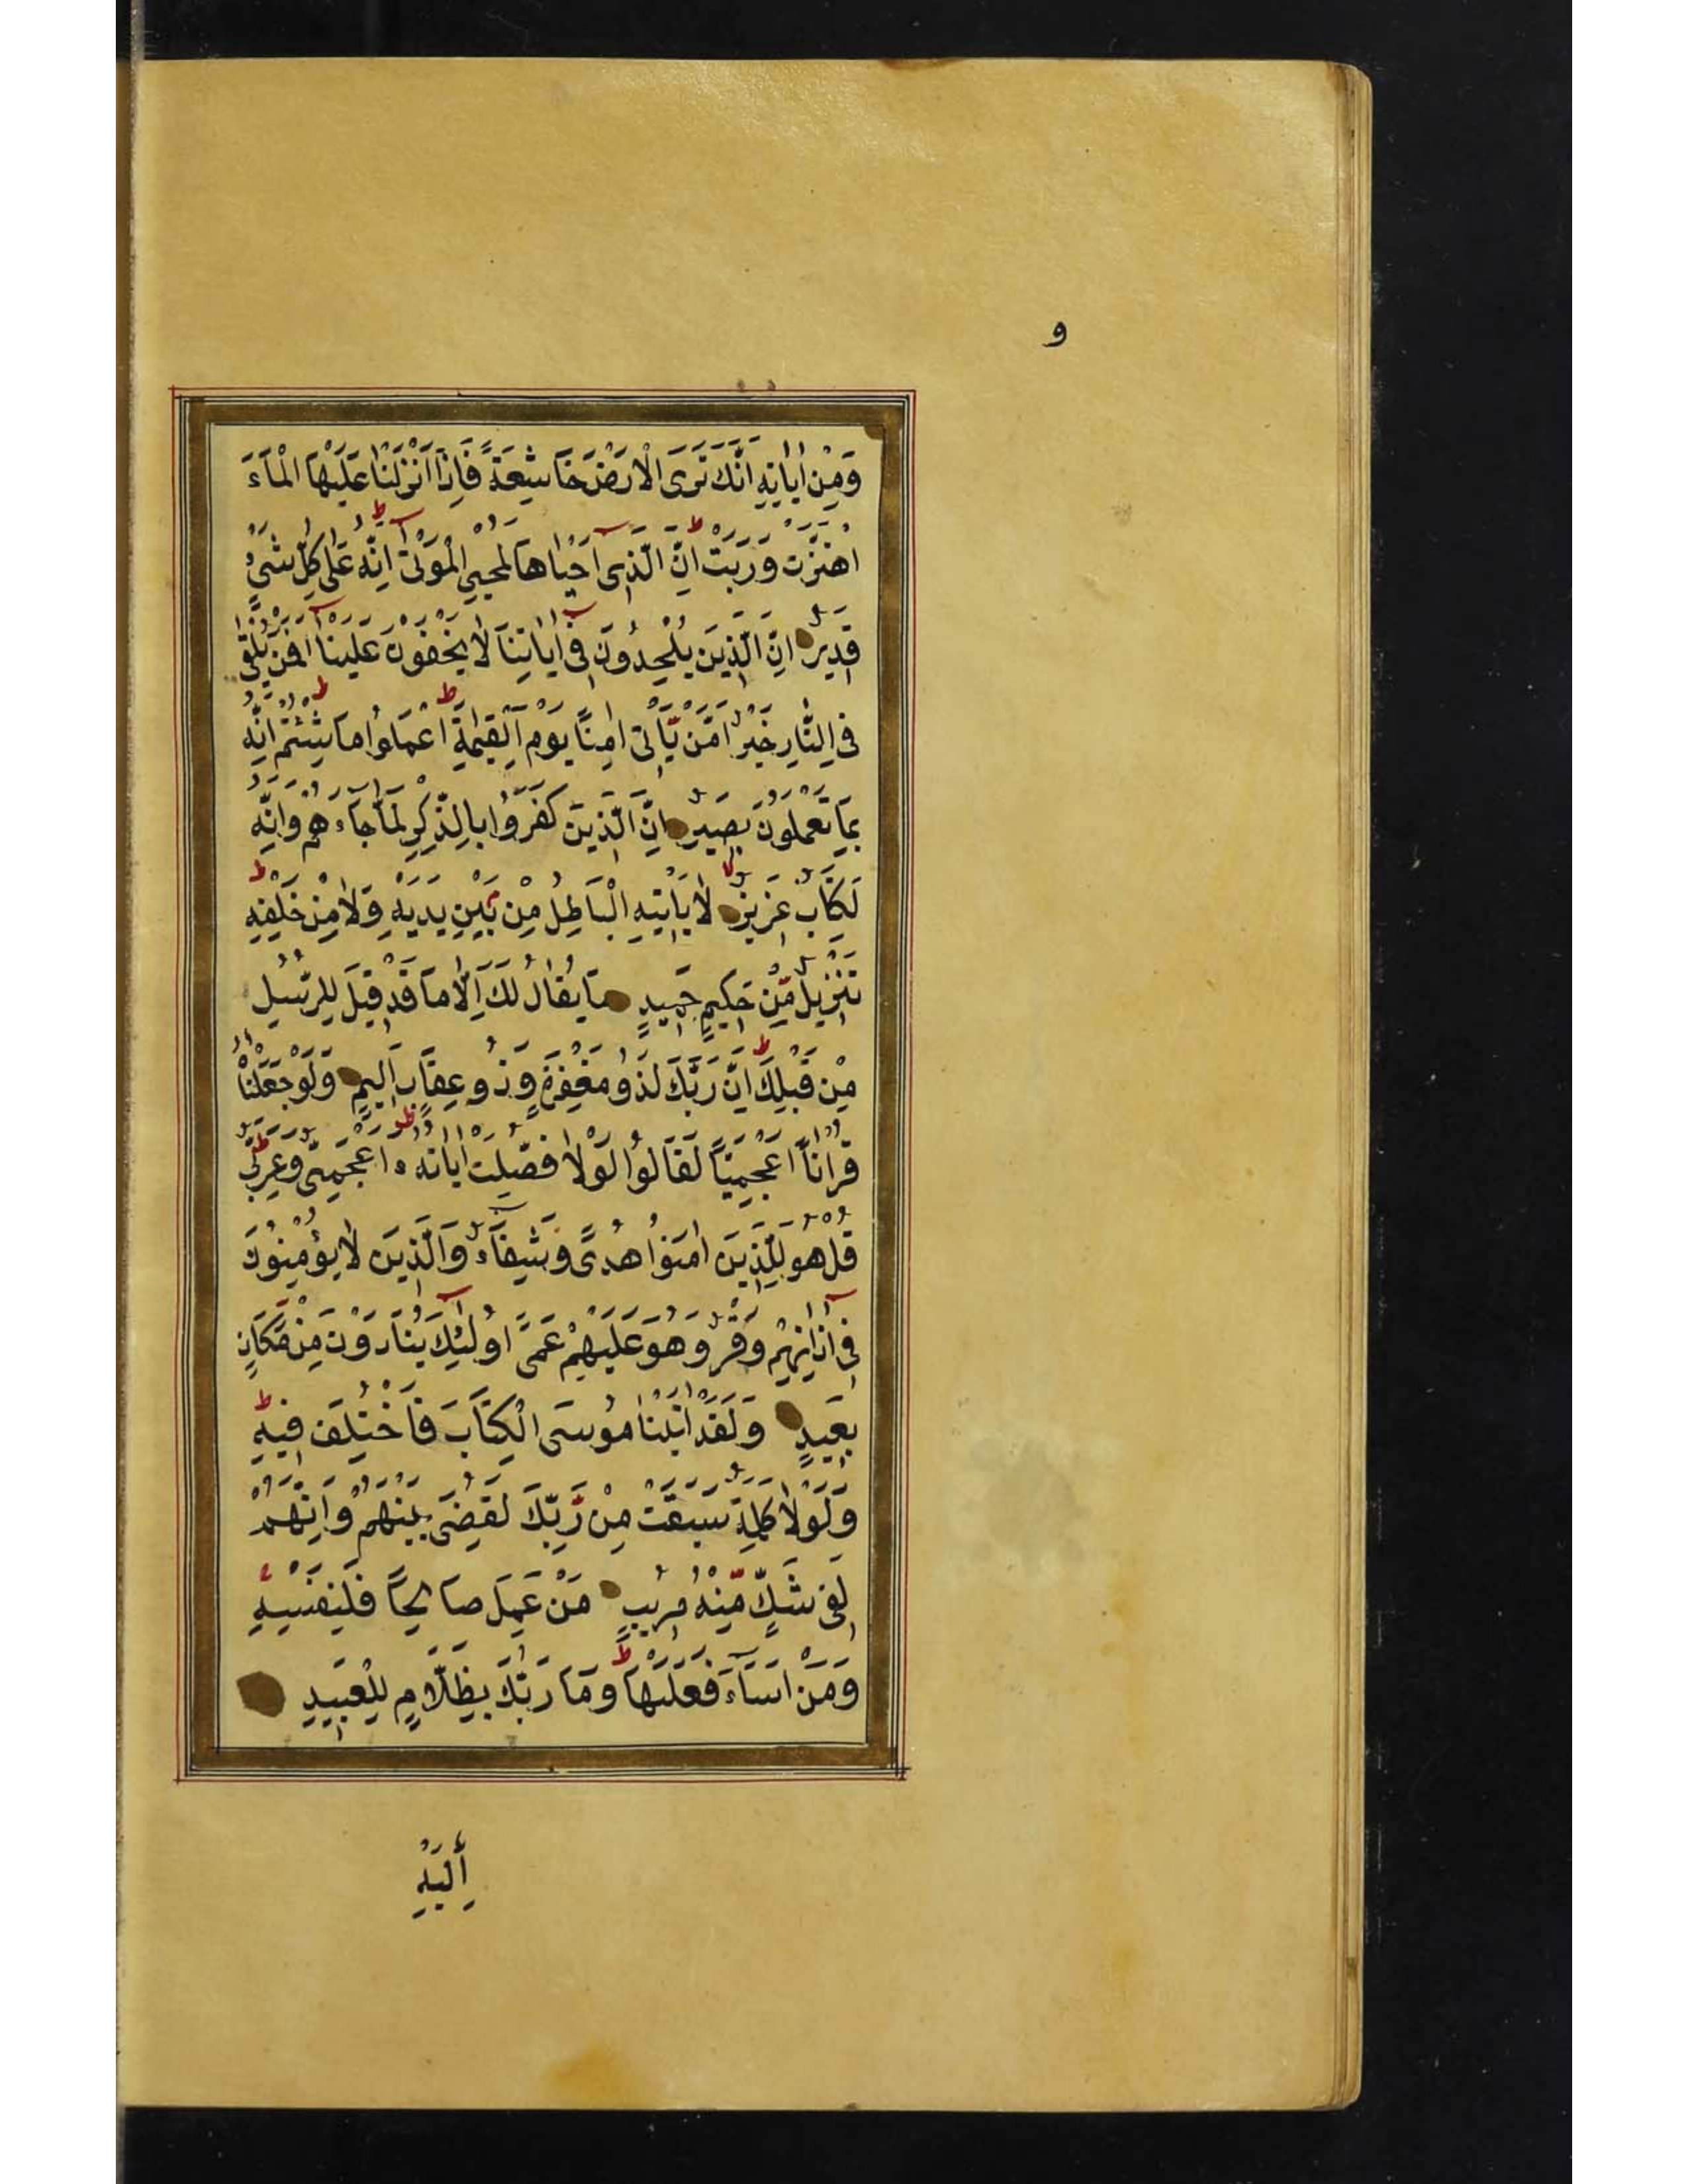 و
وَمِنْ اٰيَاتِهِ اَنَّكَ تَرَى الْاَرْضَ خَاشِعَةً فَاِذَا اَنْزَلْنَا عَلَيْهَا الْمَآءَ
اهْتَزَّتْ وَرَبَتْ ط اِنَّ الَّذِىٓ اَحْيَاهَا لَمُحْيِي الْمَوْتٰى ط اِنَّهُ عَلٰى كُلِّ شَىْءٍ
قَدِيرٌ اِنَّ الَّذِينَ يُلْحِدُونَ فِىٓ اٰيَاتِنَا لَا يَخْفَوْنَ عَلَيْنَا ط اَفَمَنْ يُلْقٰى
فِى النَّارِ خَيْرٌ اَمْ مَّنْ يَّاْتِىٓ اٰمِنًا يَوْمَ الْقِيٰمَةِ ط اعْمَلُوا مَا شِئْتُمْ اِنَّهُ
بِمَا تَعْمَلُونَ بَصِيرٌ اِنَّ الَّذِينَ كَفَرُوا بِالذِّكْرِ لَمَّا جَآءَهُمْ وَاِنَّهُ
لَكِتَابٌ عَزِيزٌ لا لَا يَاْتِيهِ الْبَاطِلُ مِنْ بَيْنِ يَدَيْهِ وَلَا مِنْ خَلْفِهِ ط
تَنْزِيلٌ مِّنْ حَكِيمٍ حَمِيدٍ مَا يُقَالُ لَكَ اِلَّا مَا قَدْ قِيلَ لِلرُّسُلِ
مِنْ قَبْلِكَ ط اِنَّ رَبَّكَ لَذُو مَغْفِرَةٍ وَذُو عِقَابٍ اَلِيمٍ وَلَوْ جَعَلْنٰهُ
قُرْاٰنًا اَعْجَمِيًّا لَقَالُوا لَوْلَا فُصِّلَتْ اٰيَاتُهُ ط ءَاَعْجَمِىٌّ وَعَرَبِىٌّ ط
قُلْ هُوَ لِلَّذِينَ اٰمَنُوا هُدًى وَشِفَآءٌ وَالَّذِينَ لَا يُؤْمِنُونَ
فِىٓ اٰذَانِهِمْ وَقْرٌ وَهُوَ عَلَيْهِمْ عَمًى اُولٰٓئِكَ يُنَادَوْنَ مِنْ مَّكَانٍ
بَعِيدٍ وَلَقَدْ اٰتَيْنَا مُوسَى الْكِتَابَ فَاخْتُلِفَ فِيهِ ط
وَلَوْلَا كَلِمَةٌ سَبَقَتْ مِنْ رَّبِّكَ لَقُضِىَ بَيْنَهُمْ وَاِنَّهُمْ
لَفِى شَكٍّ مِّنْهُ مُرِيبٍ مَنْ عَمِلَ صَالِحًا فَلِنَفْسِهِ
وَمَنْ اَسَآءَ فَعَلَيْهَا ط وَمَا رَبُّكَ بِظَلَّامٍ لِلْعَبِيدِ
إِلَيْهِ